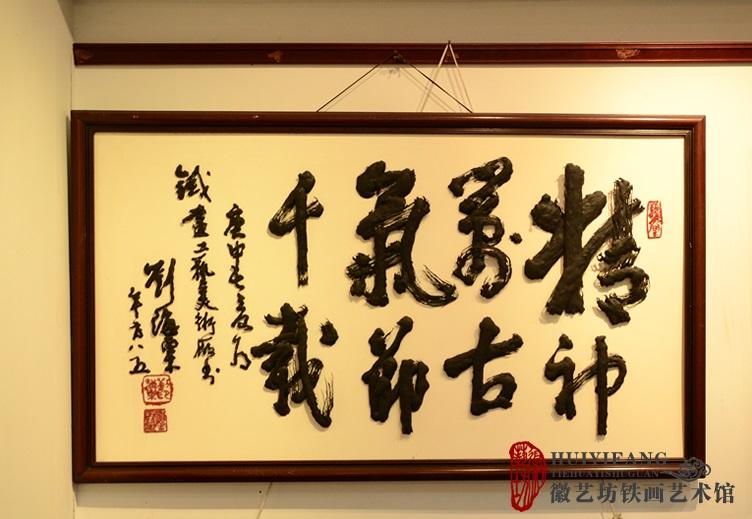 精神
萬古
氣節
千載
庚申
鐵畫工藝美術厰書
劉海粟
年方八五
HUIYIFANG
TIEHUAYISHUGUAN
徽艺坊铁画艺术馆